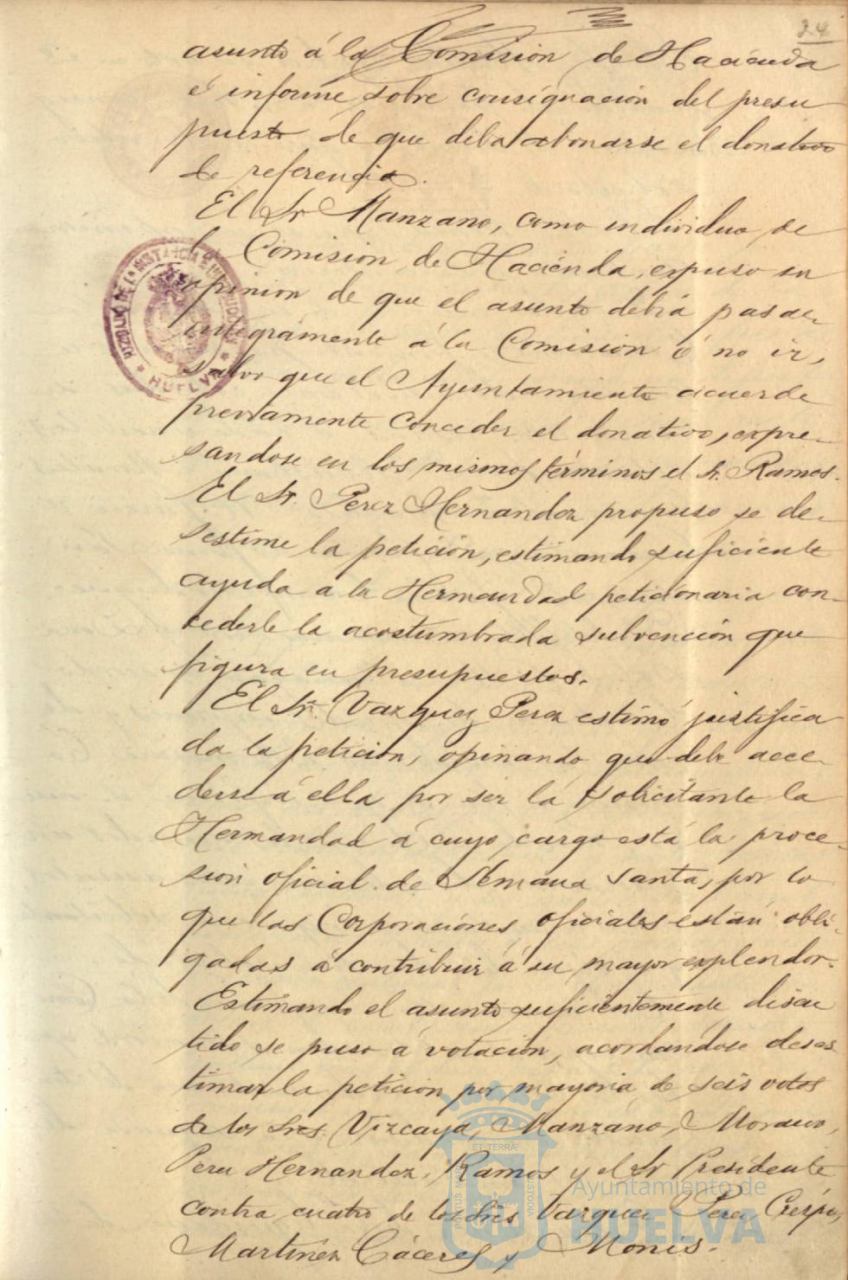 24
asunto á la Comision de Hacienda
é informe sobre consignación del presu
puesto de que deba abonarse el donativo
de referencia.
El Sr Manzano, como individuo de
la Comision de Hacienda, expuso su
opinion de que el asunto debia pasar
integramente á la Comisión ó no ir,
salvo que el Ayuntamiento acuerde
previamente conceder el donativo, expre-
sandose en los mismos términos el Sr. Ramos.
El Sr. Perez Hernandez propuso se de-
sestime la petición, estimando suficiente
ayuda a la Hermandad peticionaria con-
cederle la acostumbrada subvención que
figura en presupuestos.
El Sr. Vazquez Perez estimó justifica
da la petición, opinando que debe acce-
derse á ella por ser la solicitante la
Hermandad á cuyo cargo está la proce-
sion oficial de Semana Santa, por lo
que las Corporaciones oficiales están obli-
gadas á contribuir á su mayor explendor.
Estimando el asunto suficientemente discu
tido se puso á votación, acordándose deses
timar la petición por mayoria de seis votos
de los Sres. Vizcaya, Manzano, Moreno,
Perez Hernandez, Ramos y el Sr Presidente
contra cuatro de los Sres Vazquez Perez, Crespo,
Martínez Cáceres y Monis.
HUELVA
ET TERRÆ
Ayuntamiento de
HUELVA